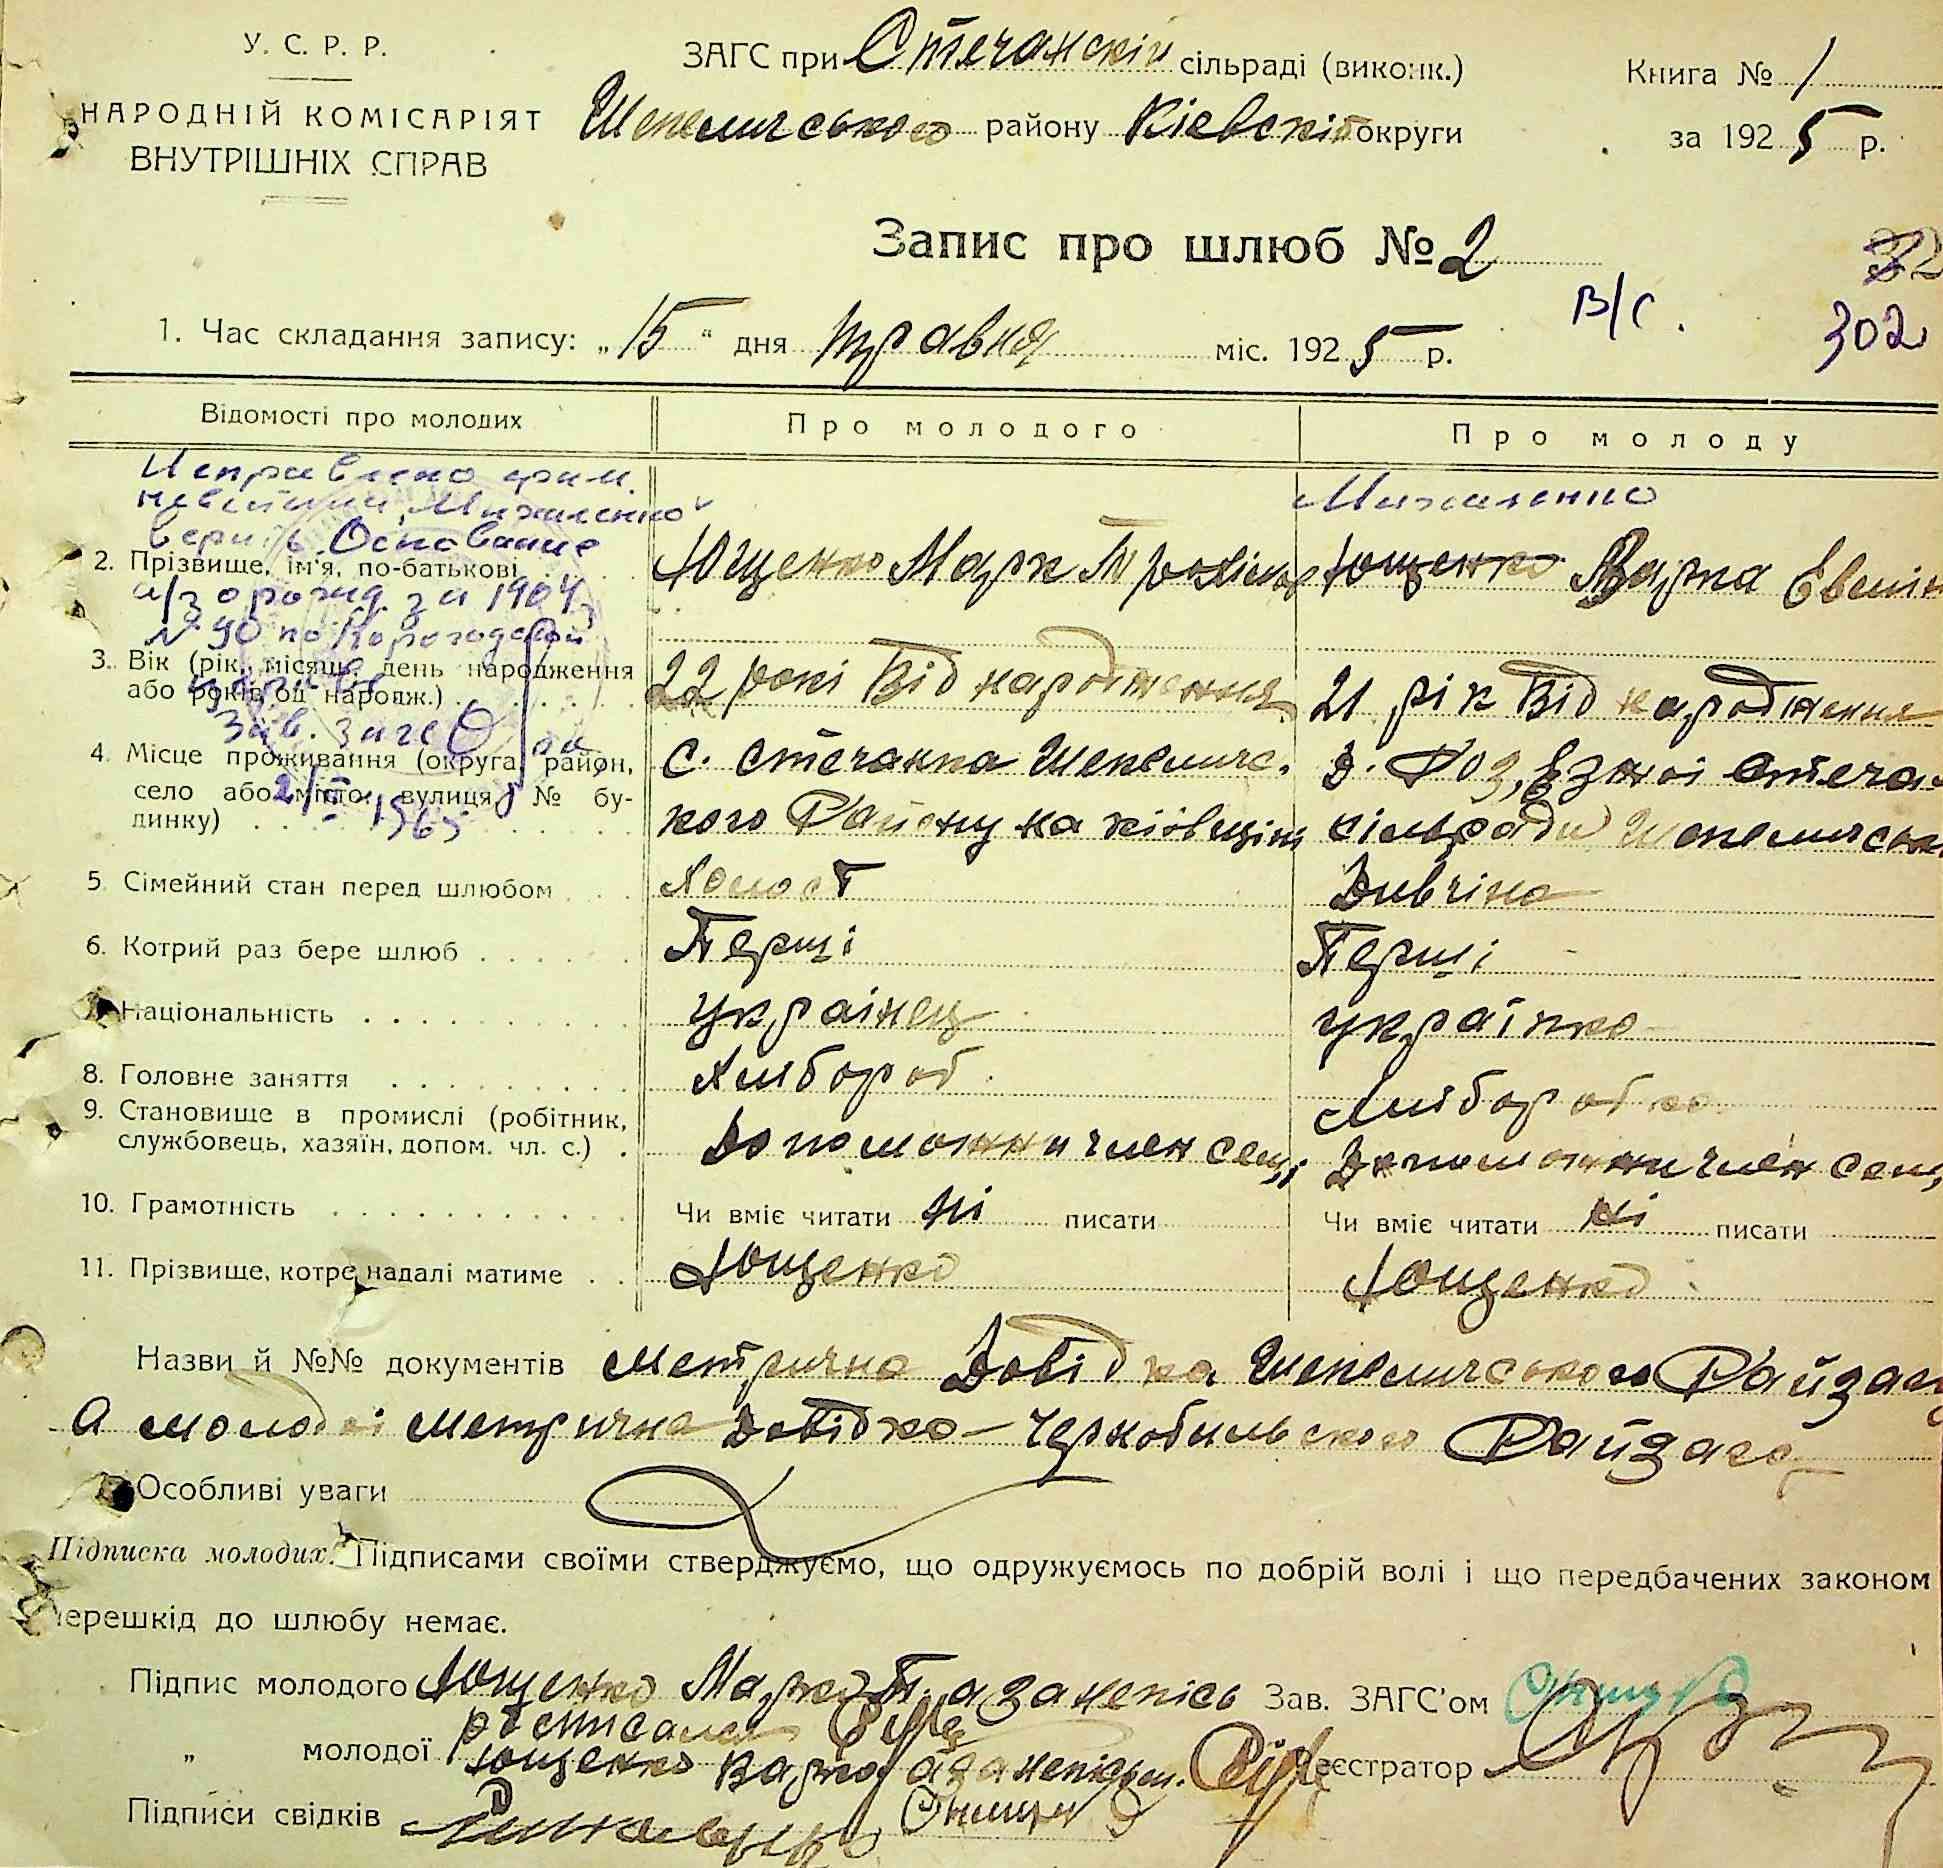 У. С. Р. Р.
НАРОДНІЙ КОМІСАРІЯТ
ВНУТРІШНІХ СПРАВ
ЗАГС при Стечанскій сільраді (виконк.)
Шепеличського району Кіевскій округи
Книга № 1
за 1925 р.
Запис про шлюб № 2
32
В/С.
302
1. Час складання запису: „15“ дня травня міс. 1925 р.
Відомості про молодих
Про молодого
Про молоду
Исправлено фам.
невесты „Михаленко“
верить. Основание
а/з о рожд за 1904
№ 90 по Корогодской
Зав. загс
2/ 1965
Михаленко
2. Прізвище, ім'я, по-батькові
Ющенко Марк
Ющенко Варка
3. Вік (рік, місяць, день народження
або років од народж.)
22 рокі Від народження
21 рік Від народження
4. Місце проживання (округа, район,
село або місто, вулиця, № бу-
динку)
С. Стечанка Шепеличс.
кого Району на київщін
Д. Роз,Езжої Стеча
сільради Шепеличськ
5. Сімейний стан перед шлюбом
Холост
Дивчіна
6. Котрий раз бере шлюб
Перші
Перші
7. Національність
українец
українка
8. Головне заняття
Хлібороб
Хлібороб ка
9. Становище в промислі (робітник,
службовець, хазяїн, допом. чл. с.)
Допоможни член семі
Допоможни член сем,
10. Грамотність
Чи вміє читати ні писати
Чи вміє читати ні писати
11. Прізвище, котре надалі матиме
Ющенко
Ющенко
Назви й №№ документів Метрична Довідка Шепеличського Райзагс
А молодоі метрична довідка – Чернобильского Райзагс
Особливі уваги
Підписка молодих. Підписами своїми стверджуємо, що одружуємось по добрій волі і що передбачених законом
перешкід до шлюбу немає.
Підпис молодого Ющенко Марко П. а за непісь Зав. ЗАГС'ом
росписался
„ молодої Ющенко Варка а за непісьм. Реєстратор
Підписи свідків